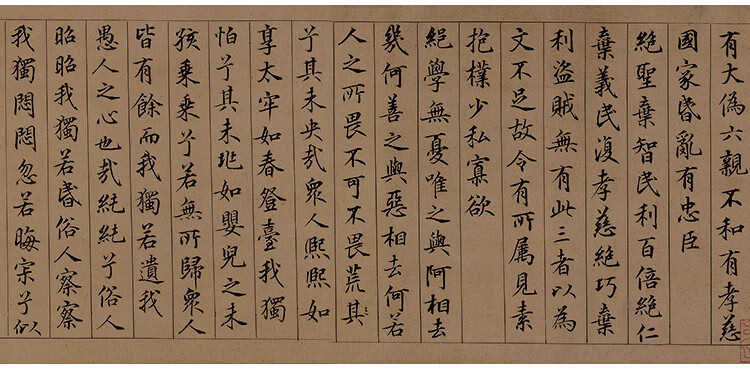 有大偽六親不和有孝慈
國家昏亂有忠臣
絕聖棄智民利百倍絕仁
棄義民復孝慈絕巧棄
利盜賊無有此三者以為
文不足故令有所属見素
抱樸少私寡欲
絕學無憂唯之與阿相去
幾何善之與惡相去何若
人之所畏不可不畏荒其
兮其未央哉眾人熙熙如
享太牢如春登臺我獨
怕兮其未兆如嬰兒之未
孩乘乘兮若無所歸眾人
皆有餘而我獨若遺我
愚人之心也哉純純兮俗人
昭昭我獨若昏俗人察察
我獨悶悶忽若晦寂兮似